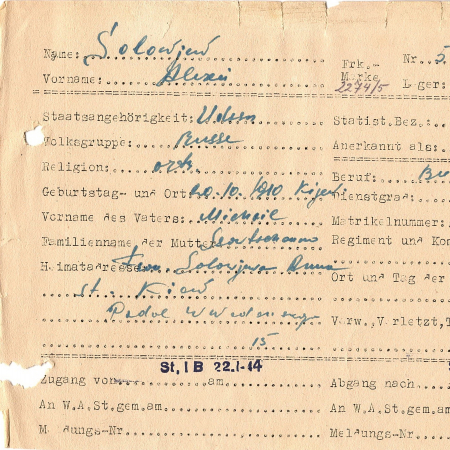 Name: Solowjew Frk.- Nr. 5
Vorname: Alexei Marke Lager:
2274/5
Staatsangehörigkeit: Udssr Statist.Bez.:
Volksgruppe: Russe Anerkannt als:
Religion: orth. Beruf:
Geburtstag- und Ort: 20.10.1910 Kijew Dienstgrad:
Vorname des Vaters: Michail Matrikelnummer:
Familienname der Mutter: Regiment und Kom
Heimatadresse: Frau Solowjewa Anna Ort und Tag der
St. Kiew
Podol Wwedenskaja Verw.,Verletzt,T
15
St, I B 22.1.44
Zugang von am Abgang nach
An W.A.St.gem.am An W.A.St.gem.am
Meldungs-Nr. Meldungs-Nr.